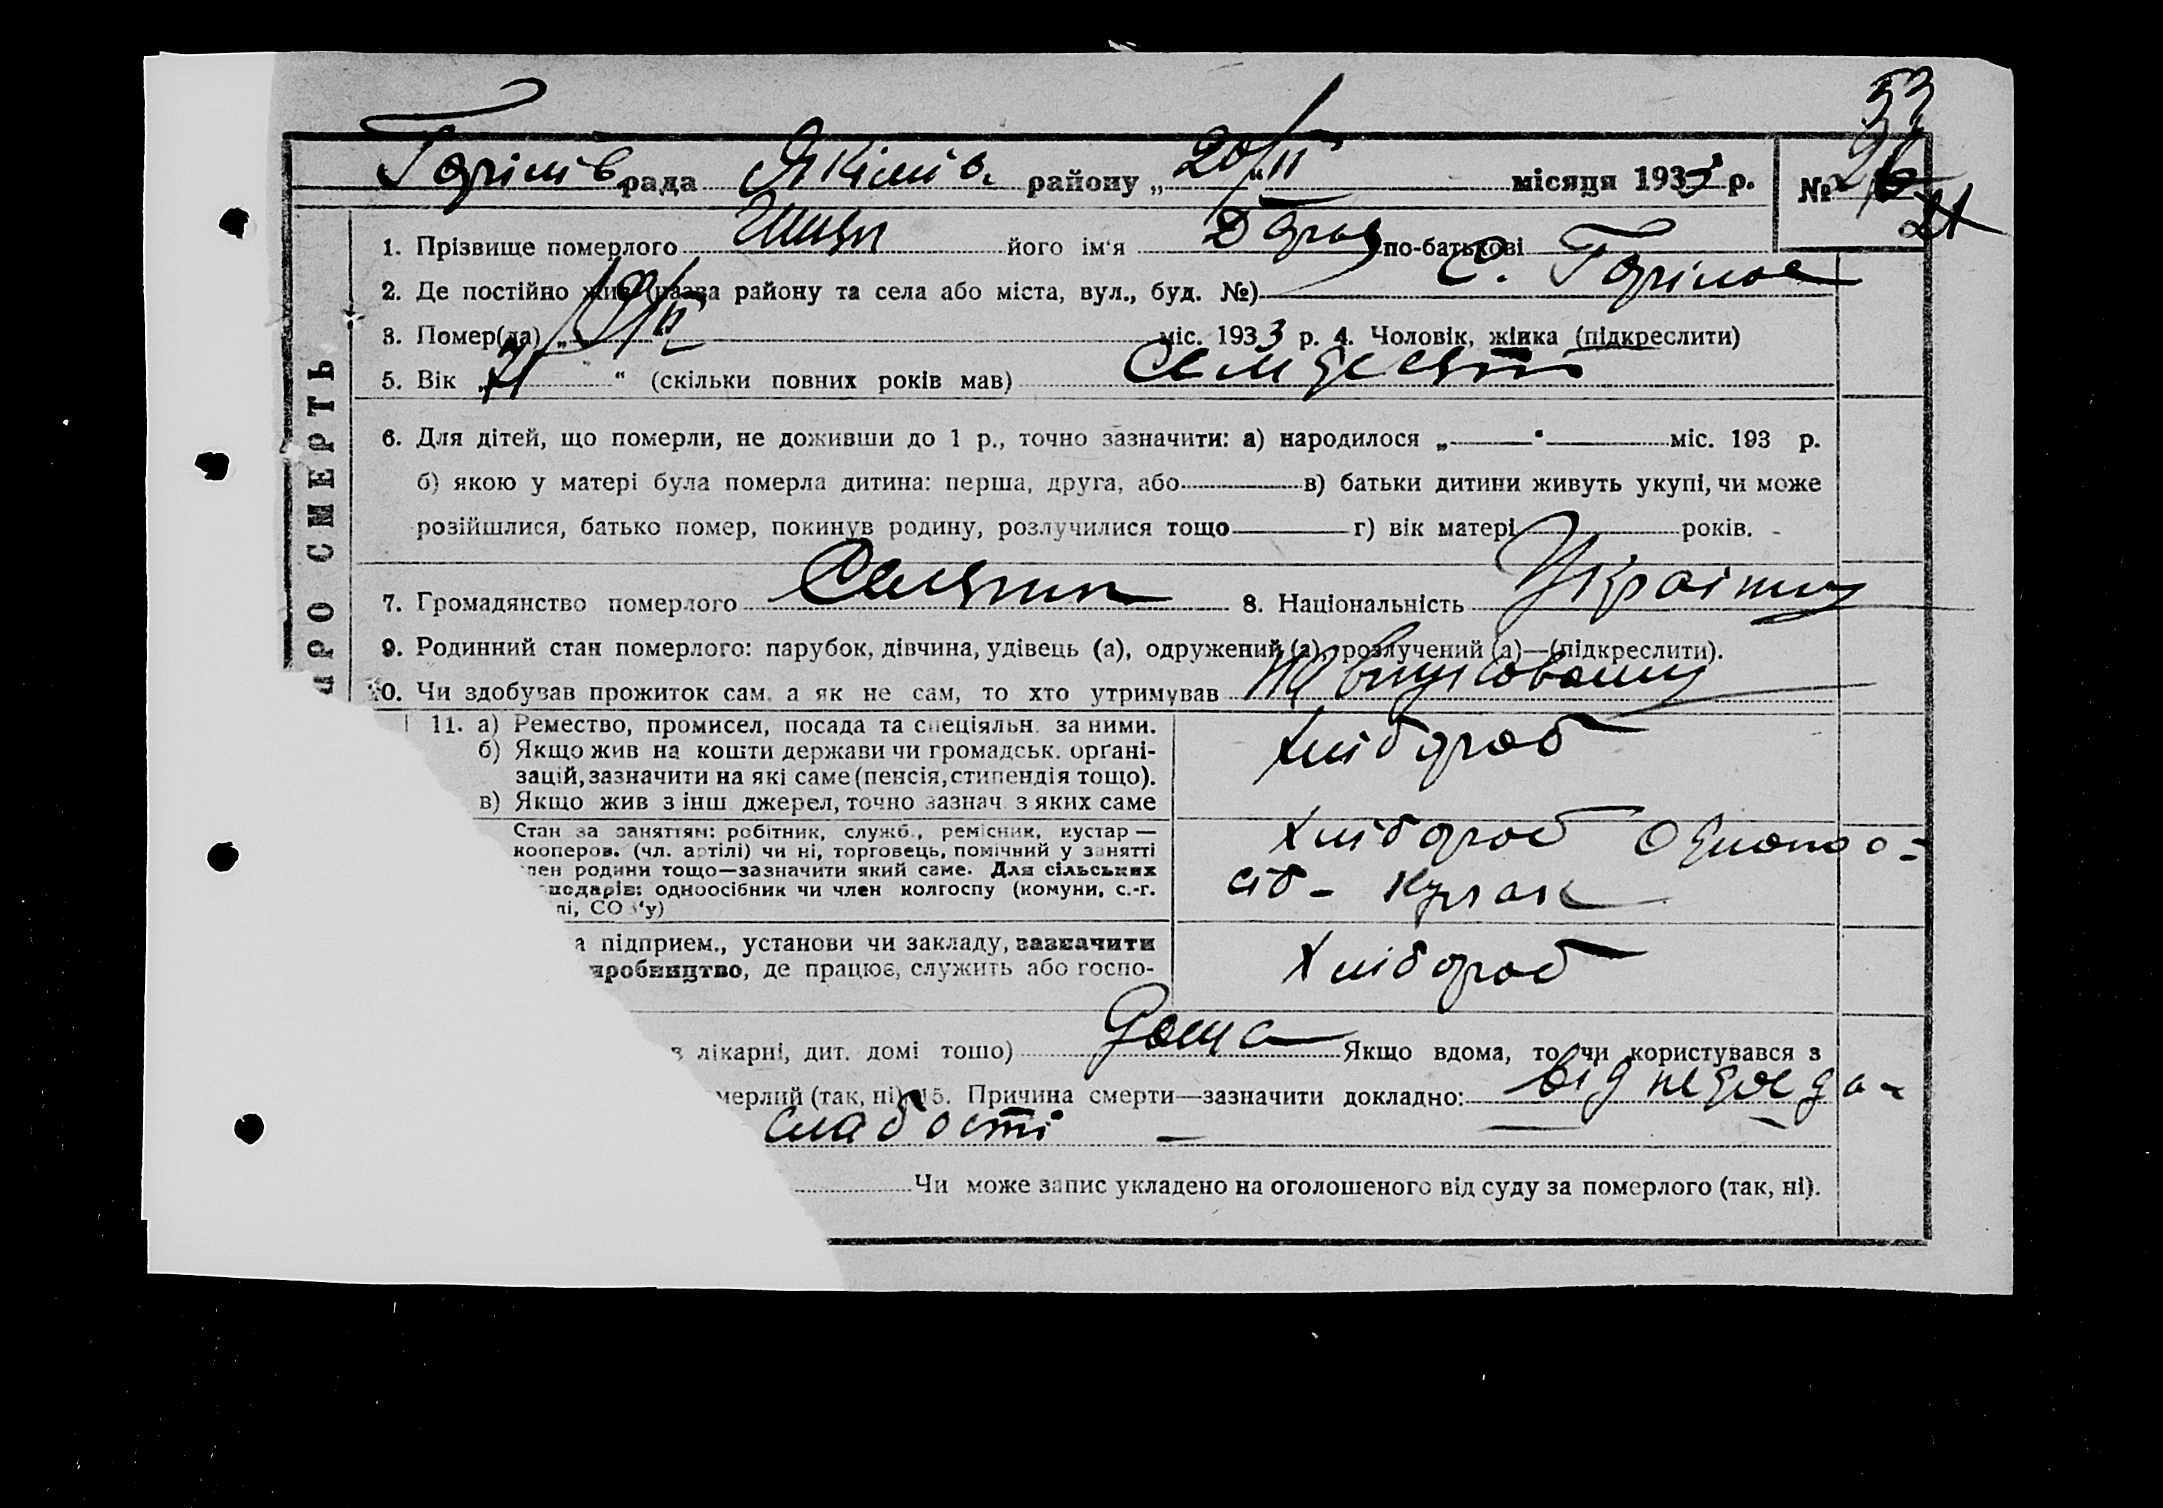 53
Горілів. рада Якимів. району „20/II“ місяця 1933 р. № 26
1. Прізвище померлого його ім'я по-батькові
2. Де постійно жив (назва району та села або міста, вул., буд. №) с. Горілое
3. Помер(ла) „19/II“ міс. 1933 р. 4. Чоловік, жінка (підкреслити)
5. Вік „71“ (скільки повних років мав)
6. Для дітей, що померли, не доживши до 1 р., точно зазначити: а) народилося „ “ міс. 193 р.
б) якою у матері була померла дитина: перша, друга, або в) батьки дитини живуть укупі, чи може
розійшлися, батько помер, покинув родину, розлучилися тощо г) вік матері років.
7. Громадянство померлого 8. Національність Україн
9. Родинний стан померлого: парубок, дівчина, удівець (а), одружений (а), розлучений (а)—(підкреслити).
10. Чи здобував прожиток сам, а як не сам, то хто утримував
11. а) Ремество, промисел, посада та спеціяльн. за ними.
б) Якщо жив на кошти держави чи громадськ. органі-
зацій, зазначити на які саме (пенсія, стипендія тощо).
в) Якщо жив з інш. джерел, точно зазнач. з яких саме
хлібороб
Стан за заняттям: робітник, служб., ремісник, кустар—
кооперов. (чл. артілі) чи ні, торговець, помічний у занятті
член родини тощо—зазначити який саме. Для сільських
господарів: одноосібник чи член колгоспу (комуни, с.-г.
лі, СОЗ'у)
хлібороб одноо-
сіб - куркак
а підприєм., установи чи закладу, зазначити
виробництво, де працює, служить або госпо-
хлібороб
в лікарні, дит. домі тощо) дома Якщо вдома, то чи користувався з
померлий (так, ні) 15. Причина смерти—зазначити докладно: від недоєда-
слабості
Чи може запис укладено на оголошеного від суду за померлого (так, ні).
ПРО СМЕРТЬ